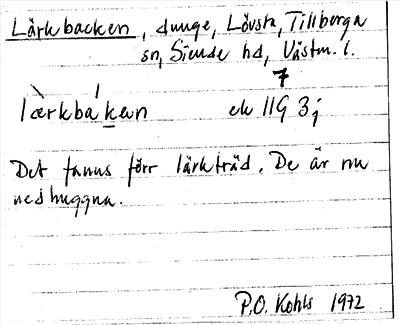 Lärkbacken, dunge, Lövsta, Tillberga
sn, Siende hd, Västm. l.
7
lærkbakæn ek 11G 3j
Det fanns förr lärkträd. De är nu
nedhuggna.
P.O. Kohls 1972